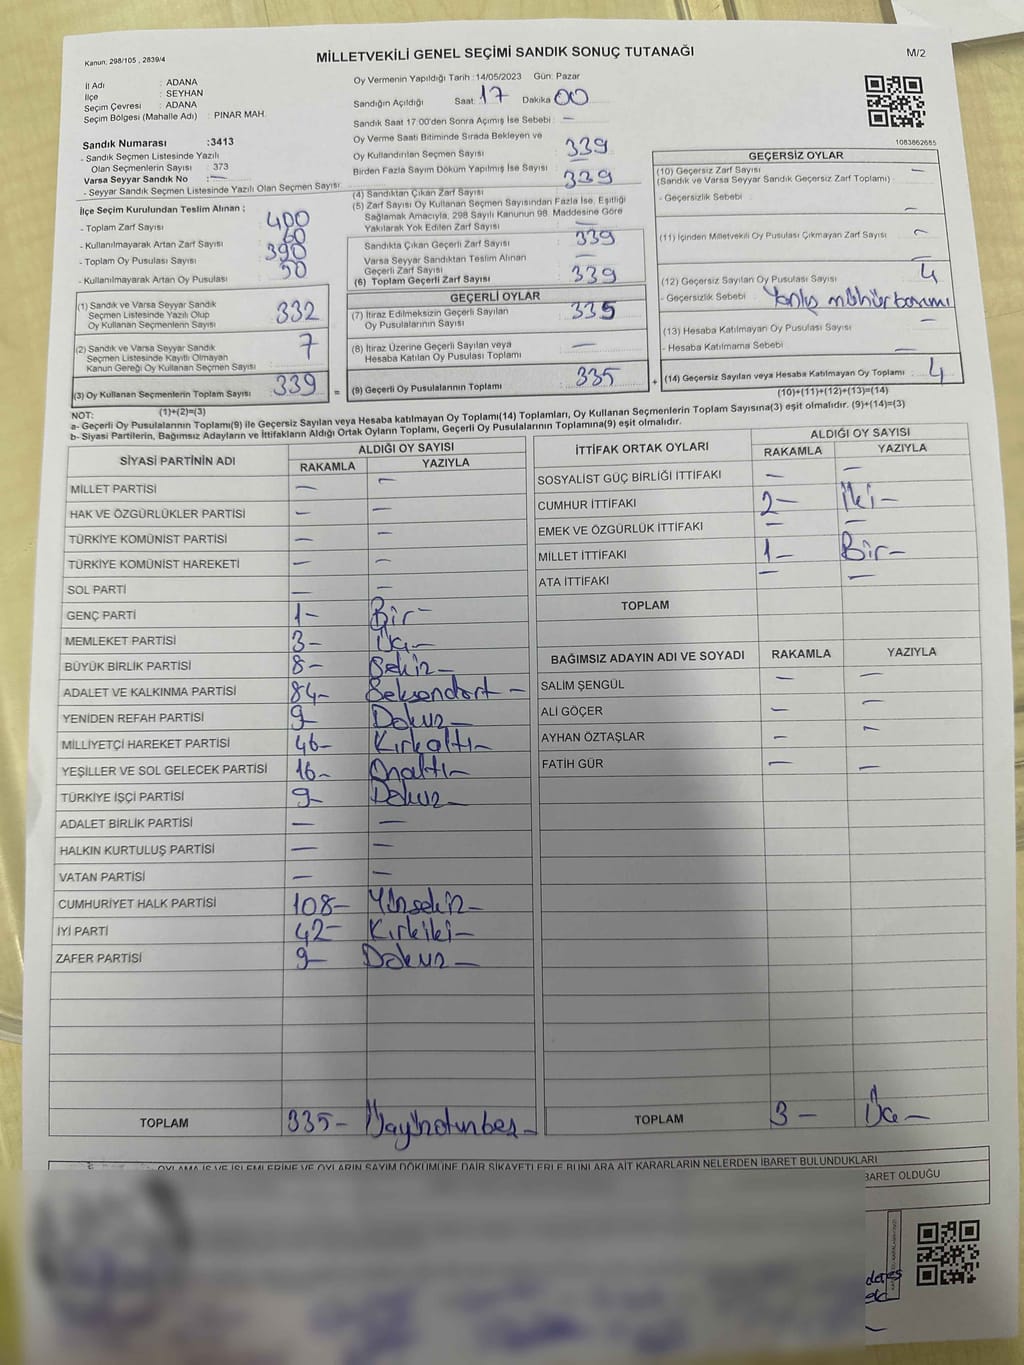 Kanun: 298/105 , 2839/4
MİLLETVEKİLİ GENEL SEÇİMİ SANDIK SONUÇ TUTANAĞI
M/2
İl Adı : ADANA
İlçe : SEYHAN
Seçim Çevresi : ADANA
Seçim Bölgesi (Mahalle Adı) : PINAR MAH.
Sandık Numarası :3413
- Sandık Seçmen Listesinde Yazılı
Olan Seçmenlerin Sayısı : 373
Varsa Seyyar Sandık No : —
- Seyyar Sandık Seçmen Listesinde Yazılı Olan Seçmen Sayısı :
İlçe Seçim Kurulundan Teslim Alınan ;
- Toplam Zarf Sayısı : 400
- Kullanılmayarak Artan Zarf Sayısı : 60
- Toplam Oy Pusulası Sayısı : 390
- Kullanılmayarak Artan Oy Pusulası : 50
(1) Sandık ve Varsa Seyyar Sandık
Seçmen Listesinde Yazılı Olup
Oy Kullanan Seçmenlerin Sayısı : 332
(2) Sandık ve Varsa Seyyar Sandık
Seçmen Listesinde Kayıtlı Olmayan
Kanun Gereği Oy Kullanan Seçmen Sayısı : 7
(3) Oy Kullanan Seçmenlerin Toplam Sayısı : 339 =
(1)+(2)=(3)
Oy Vermenin Yapıldığı Tarih : 14/05/2023 Gün: Pazar
Sandığın Açıldığı Saat: 17 Dakika 00
Sandık Saat 17:00'den Sonra Açımış İse Sebebi : —
Oy Verme Saati Bitiminde Sırada Bekleyen ve
Oy Kullandırılan Seçmen Sayısı : 339
Birden Fazla Sayım Döküm Yapılmış İse Sayısı : 339
(4) Sandıktan Çıkan Zarf Sayısı
(5) Zarf Sayısı Oy Kullanan Seçmen Sayısından Fazla İse, Eşitliği
Sağlamak Amacıyla, 298 Sayılı Kanunun 98. Maddesine Göre
Yakılarak Yok Edilen Zarf Sayısı : —
Sandıkta Çıkan Geçerli Zarf Sayısı : 339
Varsa Seyyar Sandıktan Teslim Alınan
Geçerli Zarf Sayısı : —
(6) Toplam Geçerli Zarf Sayısı : 339
GEÇERLİ OYLAR
(7) İtiraz Edilmeksizin Geçerli Sayılan
Oy Pusulalarının Sayısı : 335
(8) İtiraz Üzerine Geçerli Sayılan veya
Hesaba Katılan Oy Pusulası Toplamı : —
(9) Geçerli Oy Pusulalarının Toplamı : 335 +
1083862685
GEÇERSİZ OYLAR
(10) Geçersiz Zarf Sayısı : —
(Sandık ve Varsa Seyyar Sandık Geçersiz Zarf Toplamı)
- Geçersizlik Sebebi : —
(11) İçinden Milletvekili Oy Pusulası Çıkmayan Zarf Sayısı : —
(12) Geçersiz Sayılan Oy Pusulası Sayısı : 4
- Geçersizlik Sebebi : Yanlış mühür basımı
(13) Hesaba Katılmayan Oy Pusulası Sayısı : —
- Hesaba Katılmama Sebebi : —
(14) Geçersiz Sayılan veya Hesaba Katılmayan Oy Toplamı : 4
(10)+(11)+(12)+(13)=(14)
NOT:
a- Geçerli Oy Pusulalarının Toplamı(9) ile Geçersiz Sayılan veya Hesaba katılmayan Oy Toplamı(14) Toplamları, Oy Kullanan Seçmenlerin Toplam Sayısına(3) eşit olmalıdır. (9)+(14)=(3)
b- Siyasi Partilerin, Bağımsız Adayların ve İttifakların Aldığı Ortak Oyların Toplamı, Geçerli Oy Pusulalarının Toplamına(9) eşit olmalıdır.
SİYASİ PARTİNİN ADI ALDIĞI OY SAYISI
RAKAMLA YAZIYLA
MİLLET PARTİSİ — —
HAK VE ÖZGÜRLÜKLER PARTİSİ — —
TÜRKİYE KOMÜNİST PARTİSİ — —
TÜRKİYE KOMÜNİST HAREKETİ — —
SOL PARTİ — —
GENÇ PARTİ 1– Bir–
MEMLEKET PARTİSİ 3– Üç–
BÜYÜK BİRLİK PARTİSİ 8– Sekiz–
ADALET VE KALKINMA PARTİSİ 84– Seksendört –
YENİDEN REFAH PARTİSİ 9– Dokuz–
MİLLİYETÇİ HAREKET PARTİSİ 46– Kırkaltı–
YEŞİLLER VE SOL GELECEK PARTİSİ 16– Onaltı–
TÜRKİYE İŞÇİ PARTİSİ 9– Dokuz–
ADALET BİRLİK PARTİSİ — —
HALKIN KURTULUŞ PARTİSİ — —
VATAN PARTİSİ — —
CUMHURİYET HALK PARTİSİ 108– Yüzsekiz–
İYİ PARTİ 42– Kırkiki–
ZAFER PARTİSİ 9– Dokuz –
TOPLAM 335– Üçyüzotuzbeş –
İTTİFAK ORTAK OYLARI ALDIĞI OY SAYISI
RAKAMLA YAZIYLA
SOSYALİST GÜÇ BİRLİĞİ İTTİFAKI — —
CUMHUR İTTİFAKI 2– İki–
EMEK VE ÖZGÜRLÜK İTTİFAKI — —
MİLLET İTTİFAKI 1– Bir–
ATA İTTİFAKI — —
TOPLAM
BAĞIMSIZ ADAYIN ADI VE SOYADI RAKAMLA YAZIYLA
SALİM ŞENGÜL — —
ALİ GÖÇER — —
AYHAN ÖZTAŞLAR — —
FATİH GÜR — —
TOPLAM 3 – Üç –
OYLAMA İŞ VE İŞLEMLERİNE VE OYLARIN SAYIM DÖKÜMÜNE DAİR ŞİKAYETLERLE BUNLARA AİT KARARLARIN NELERDEN İBARET BULUNDUKLARI
BARET OLDUĞU